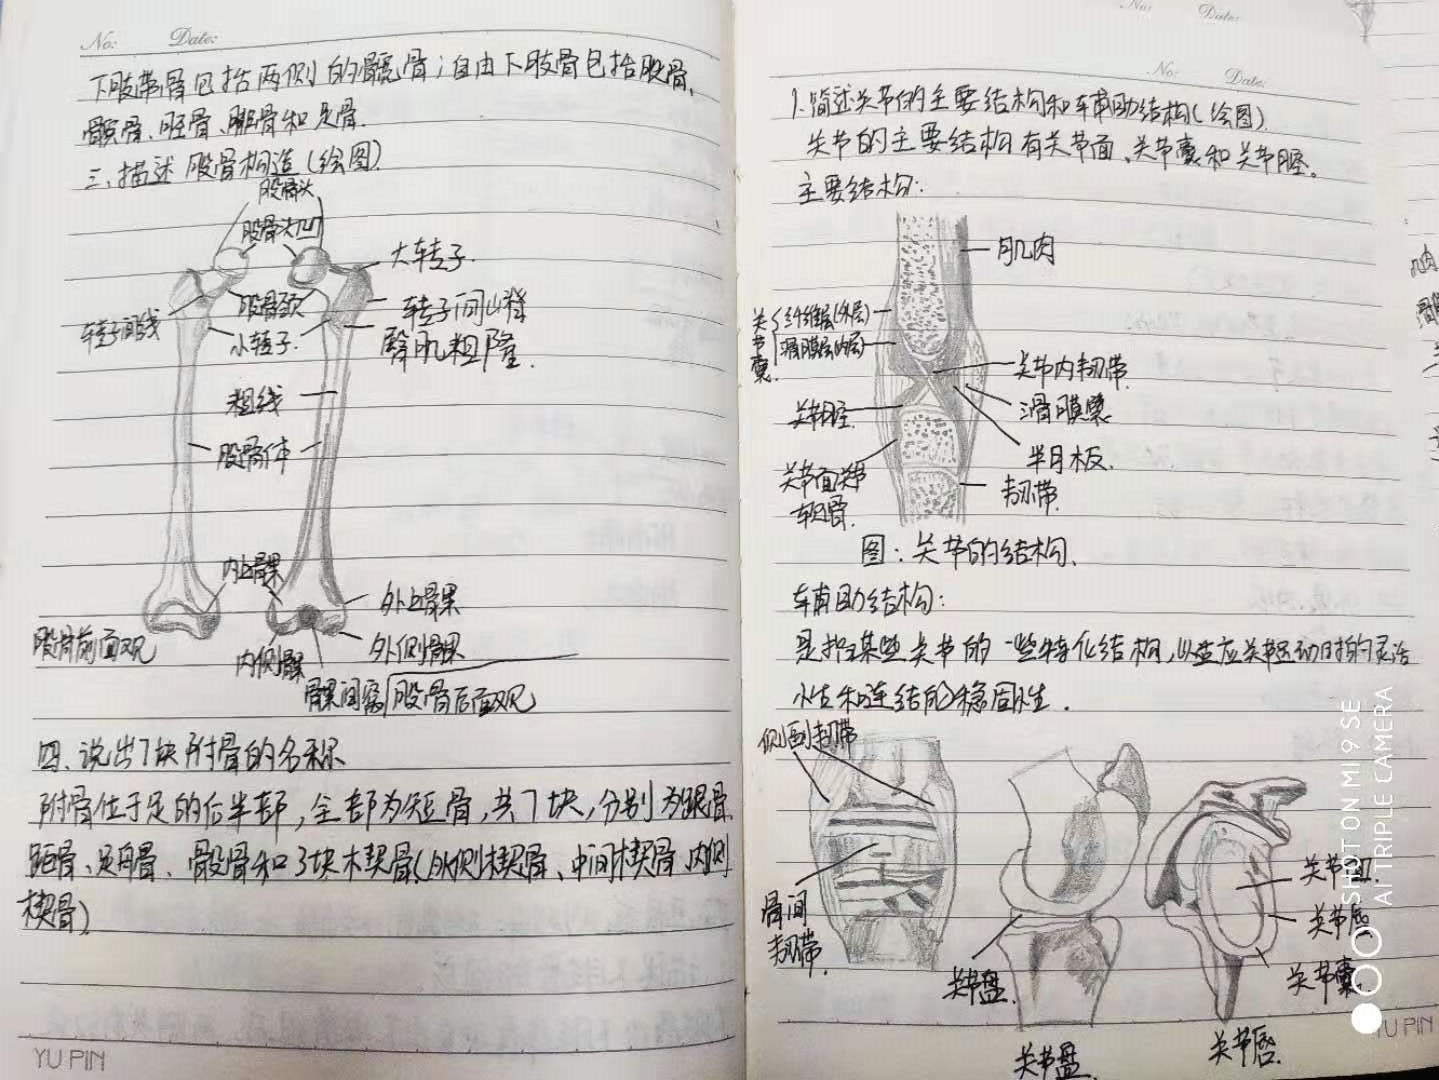 No:   Date:
下肢带骨包括两侧的髋骨；自由下肢骨包括股骨、
髌骨、胫骨、腓骨和足骨.
三、描述股骨构造(绘图)
股骨头
股骨头凹
大转子.
股骨颈
转子间嵴
转子间线
小转子.
臀肌粗隆.
粗线
股骨体
内上髁
外上髁
股骨前面观
内侧髁
外侧髁
髁间窝
股骨后面观
四、说出7块跗骨的名称
跗骨位于足的后半部,全部为短骨,共7块,分别为跟骨、
距骨、足舟骨、骰骨和3块楔骨(外侧楔骨、中间楔骨、内侧
楔骨)
YU PIN
No:   Date:
No:   Date:
1.简述关节的主要结构和辅助结构(绘图).
关节的主要结构有关节面、关节囊和关节腔。
主要结构:
肌肉
关节囊
纤维层(外层)
滑膜层(内层)
关节内韧带.
关节腔.
滑膜囊
半月板.
关节面
软骨.
韧带.
图:关节的结构.
辅助结构:
是指某些关节的一些特化结构,以适应关节运动时的灵活
性和连结的稳固性.
侧副韧带
骨间
韧带.
关节盘.
关节唇
关节囊
关节盘.
关节唇.
SHOT ON MI 9 SE
AI TRIPLE CAMERA
YU PIN